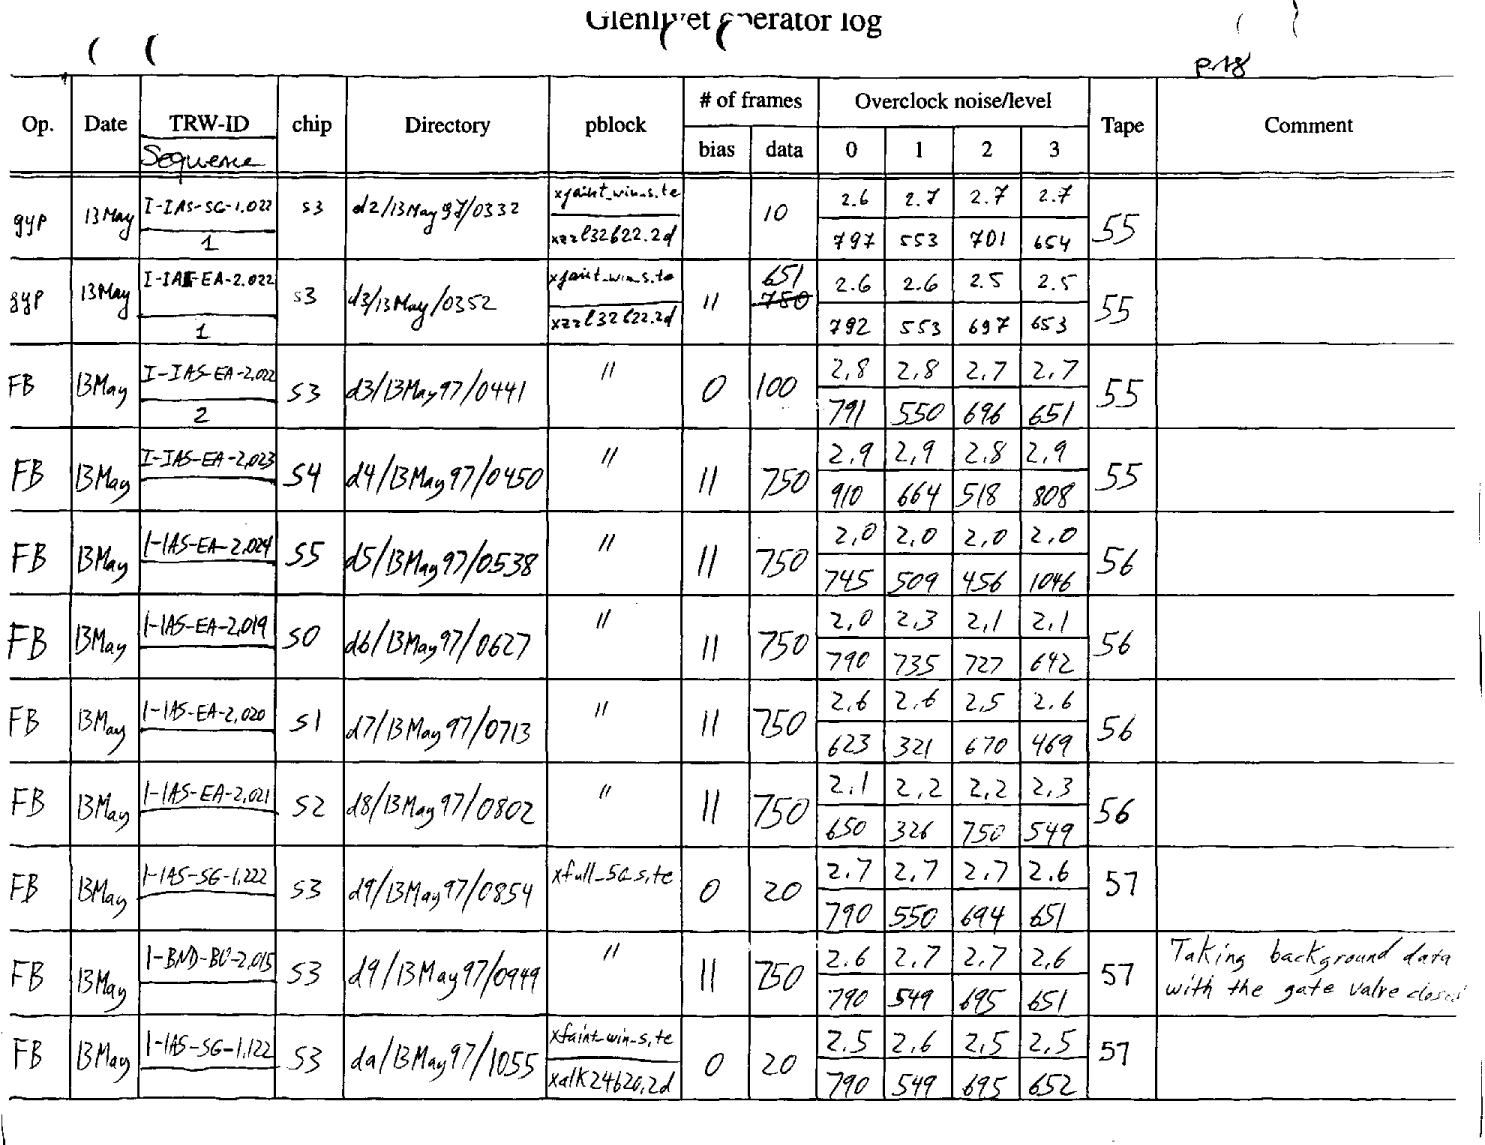 Glenlivet operator log
p.18
Op. Date TRW-ID chip Directory pblock # of frames Overclock noise/level Tape Comment
Sequence bias data 0 1 2 3
gyp 13May I-IAS-SG-1.022 s3 d2/13May97/0332 xfaint_win_s.te 10 2.6 2.7 2.7 2.7 55
1 xzzl32b22.2d 797 553 701 654
gyp 13May I-IAS-EA-2.022 s3 d3/13May/0352 xfaint_win_s.te 11 651 750 2.6 2.6 2.5 2.5 55
1 xzzl32b22.2d 792 553 697 653
FB 13May I-IAS-EA-2,022 S3 d3/13May97/0441 " 0 100 2,8 2,8 2.7 2,7 55
2 791 550 696 651
FB 13May I-IAS-EA-2,023 S4 d4/13May97/0450 " 11 750 2.9 2,9 2.8 2,9 55
910 664 518 808
FB 13May I-IAS-EA-2,024 S5 d5/13May97/0538 " 11 750 2,0 2,0 2,0 2,0 56
745 509 456 1046
FB 13May I-IAS-EA-2,019 S0 d6/13May97/0627 " 11 750 2,0 2,3 2,1 2,1 56
790 735 727 642
FB 13May I-IAS-EA-2,020 S1 d7/13May97/0713 " 11 750 2,6 2,6 2,5 2.6 56
623 321 670 469
FB 13May I-IAS-EA-2,021 S2 d8/13May97/0802 " 11 750 2.1 2,2 2,2 2,3 56
650 326 750 549
FB 13May I-IAS-SG-1,222 S3 d9/13May97/0854 xfull_5c_s,te 0 20 2.7 2,7 2.7 2.6 57
790 550 694 651
FB 13May I-BND-BC-2,015 S3 d9/13May97/0949 " 11 750 2.6 2,7 2.7 2,6 57 Taking background data
790 549 695 651 with the gate valve closed
FB 13May I-IAS-SG-1,122 S3 da/13May97/1055 xfaint_win_s,te 0 20 2.5 2,6 2,5 2,5 57
xalk24b20,2d 790 549 695 652